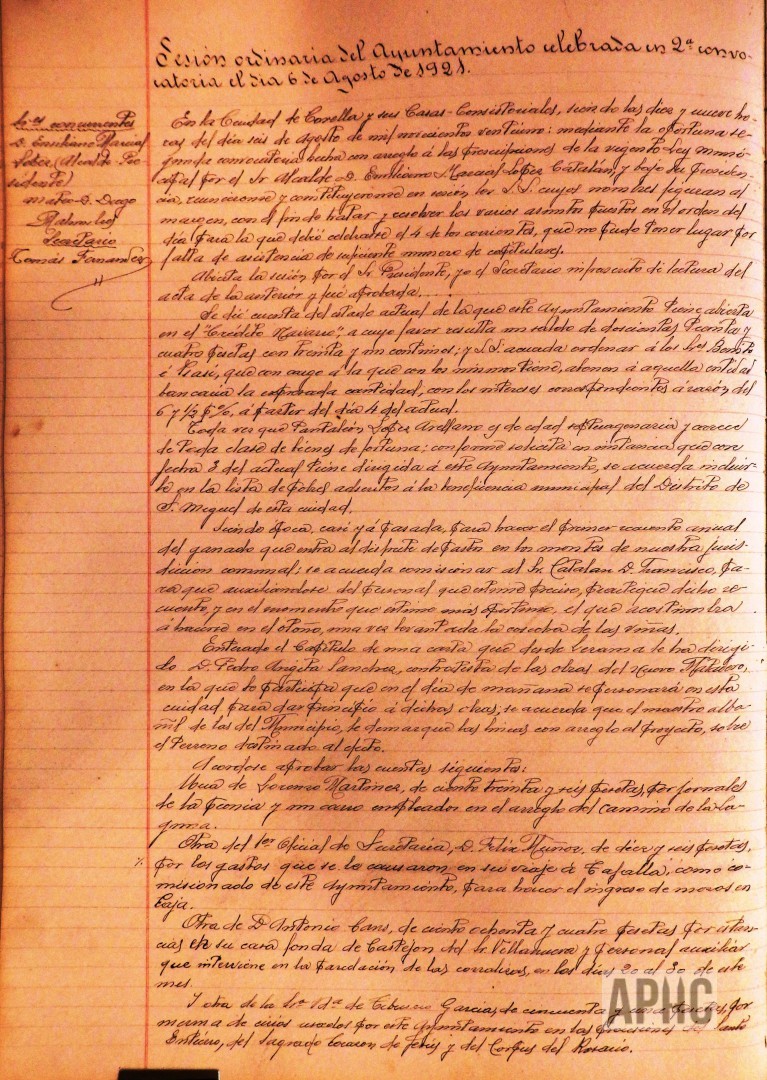 Sesión ordinaria del Ayuntamiento celebrada en 2ª convo-
catoria el dia 6 de Agosto de 1921.
Sres concurrentes
D. Emiliano Marcial
Lopez (Alcalde Pre
sidente)
D. Diego
Secretario
Tomás Fernandez
En la Ciudad de Corella y sus Casas-Consistoriales, siendo las diez y nueve ho-
ras del día seis de Agosto de mil novecientos ventiuno: mediante la oportuna se-
gunda convocatoria hecha con arreglo á las prescripciones de la vigente ley muni-
cipal por el Sr Alcalde D. Emiliano Marcial Lopez Catalán, y bajo su presiden-
cia, reunieronse y constituyeronse en sesión los S.S. cuyos nombres figuran al
margen, con el fin de tratar y resolver los varios asuntos puestos en el orden del
día para la que debió celebrarse el 4 de los corrientes, que no pudo tener lugar por
falta de asistencia de suficiente numero de capitulares.
Abierta la sesión por el Sr. Presidente, yo el Secretario infrascrito di lectura del
acta de la anterior y fué aprobada.
Se dió cuenta del estado actual de la que este Ayuntamiento tiene abierta
en el "Crédito Navarro", a cuyo favor resulta un saldo de doscientas treinta y
cuatro pesetas con treinta y un centimos; y S.S. acuerda ordenar á los Sres Benito
é que con cargo á la que con los mismos tiene, abonen á aquella entidad
bancaria la expresada cantidad, con los intereses correspondientes á razón del
6 y ½ p%, á partir del día 4 del actual.
Toda vez que Pantaleón López Arellano es de edad septuagenaria y carece
de toda clase de bienes de fortuna; conforme solicita en instancia que con
fecha 3 del actual tiene dirigida á este Ayuntamiento, se acuerda incluir-
le en la lista de pobres adscritos á la beneficencia municipal del Distrito de
S. Miguel de esta ciudad.
Siendo época, casi yá pasada, para hacer el primer recuento anual
del ganado que entra al disfrute de pastos en los montes de nuestra juris-
dicción comunal; se acuerda comisionar al Sr. Catalan D. Francisco, pa-
ra que auxiliandose del personal que estime preciso, practique dicho re-
cuento, y en el momento que estime más oportuno, el que acostumbra
á hacerse en el otoño, una vez levantada la cosecha de las viñas.
Enterado el Capítulo de una carta que desde le ha dirigi-
do D. Pedro Angita Sanchez, contratista de las obras del nuevo Matadero,
en la que le participa que en el dia de mañana se personará en esta
ciudad para dar principio á dichas obras; se acuerda que el maestro alba-
ñil de los del Municipio, le demarque las lineas con arreglo al proyecto, sobre
el terreno destinado al efecto.
Acordose aprobar las cuentas siguientes:
Una de Lorenzo Martinez, de ciento treinta y seis pesetas, por jornales
de la peonia y un carro empleados en el arreglo del camino de la La-
guna.
Otra del 1er Oficial de Secretaría, D. Felix Muñoz, de diez y seis pesetas,
por los gastos que se le causaron en su viaje á Tafalla, como co-
misionado de este Ayuntamiento, para hacer el ingreso de mozos en
Caja.
Otra de D Antonio Cans, de ciento ochenta y cuatro pesetas por estan-
cias en su casa fonda de Castejon del Sr. Villanueva y personal auxiliar
que interviene en la parcelación de las corralizas, en los dias 20 al 30 de este
mes.
Y otra de la Sra Vda de Tiburcio Garcia, de cincuenta y pesetas, por
merma de cirios usados por este Ayuntamiento en las procesiones del Santo
Entierro, del Sagrado Corazon de Jesús y del Corpus del Rosario.
APHC